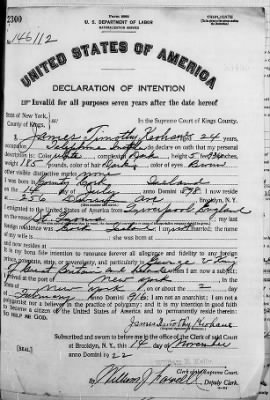 2300
Form 2202
U. S. DEPARTMENT OF LABOR
NATURALIZATION SERVICE
146112
UNITED STATES OF AMERICA
DECLARATION OF INTENTION
Invalid for all purposes seven years after the date hereof
State of New York,
County of Kings, In the Supreme Court of Kings County.
I, James Timothy Keohane, aged 24 years,
occupation Telephone, do declare on oath that my personal
description is: Color white, complexion Dark, height 5 feet inches,
weight 185 pounds, color of hair, color of eyes Brown
other visible distinctive marks none
I was born in County Cork Ireland
on the 14 day of July, anno Domini 1898; I now reside
at 256 Ave, Brooklyn, N.Y.
I emigrated to the United States of America from Liverpool England
on the vessel; my last
foreign residence was Cork Ireland; I am not married; the name
of my wife is; she was born at
and now resides at
It is my bona fide intention to renounce forever all allegiance and fidelity to any foreign
prince, potentate, state, or sovereignty, and particularly to George V King
of Great Britain and Ireland, of whom I am now a subject;
I arrived at the port of New York, in the
State of New York, on or about the 2 day
of February, anno Domini 1916; I am not an anarchist; I am not a
polygamist nor a believer in the practice of polygamy; and it is my intention in good faith
to become a citizen of the United States of America and to permanently reside therein:
James Timothy Keohane
Subscribed and sworn to before me in the office of the Clerk of said Court
at Brooklyn, N. Y., this 14 day of November
anno Domini 1922
[SEAL]
Clerk of the Supreme Court.
By William J., Deputy Clerk.